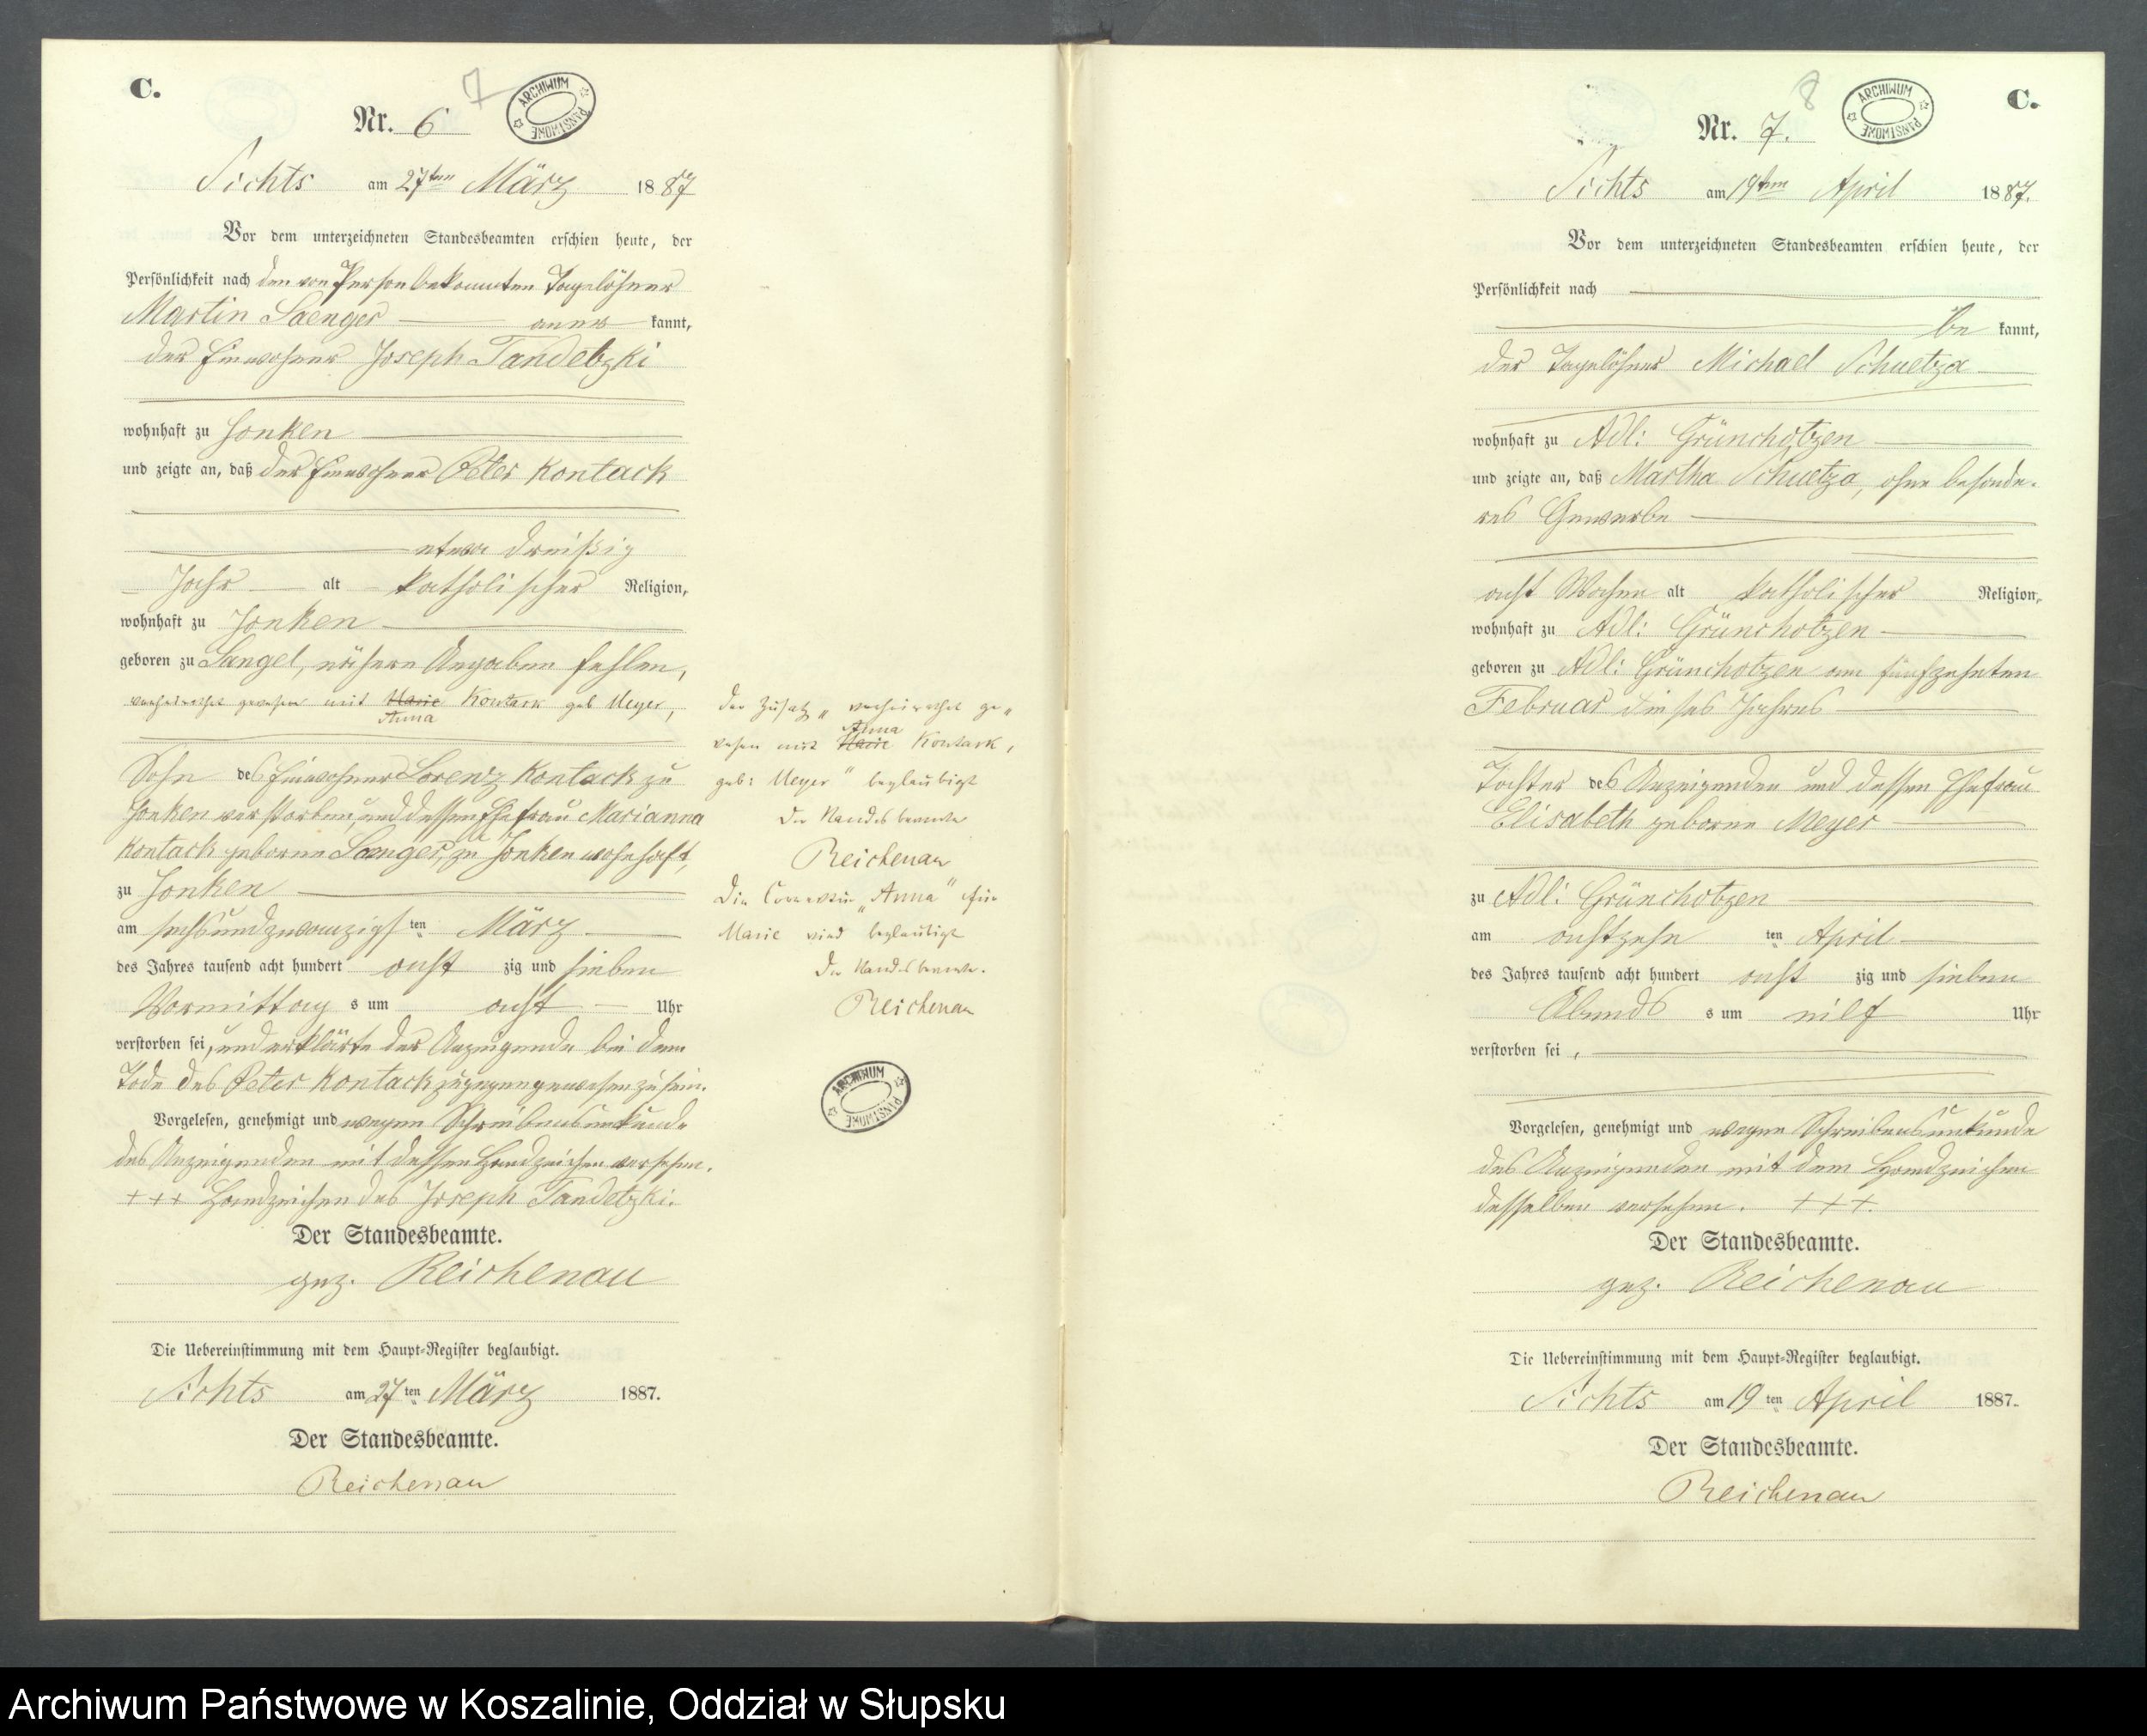 C.
7
Nr. 6
ARCHIWUM PAŃSTWOWE
Sichts am 27ten März 1887
Vor dem unterzeichneten Standesbeamten erschien heute, der
Persönlichkeit nach den von Person bekannten Tagelöhner
Martin Saenger anerkannt,
der Einwohner Joseph Tandetzki
wohnhaft zu Jonken
und zeigte an, daß der Einwohner Peter Kontack
etwa dreißig
Jahr alt katholischer Religion,
wohnhaft zu Jonken
geboren zu Sangel, nähere Angaben fehlen,
verheirathet gewesen mit Marie Kontack geb Meyer,
Anna
Sohn des Einwohner Lorenz Kontack zu
Jonken verstorben, und dessen Ehefrau Marianna
Kontack geborne Saenger, zu Jonken wohnhaft,
zu Jonken
am sechsundzwanzigsten März
des Jahres tausend acht hundert acht zig und sieben
Vormittags um acht Uhr
verstorben sei, und erklärte der Anzeigende bei dem
Tode des Peter Kontack zugegen gewesen zu sein.
Vorgelesen, genehmigt und wegen Schreibensunkunde
des Anzeigenden mit dessen Handzeichen versehen.
+++ Handzeichen des Joseph Tandetzki.
Der Standesbeamte.
gez. Reichenau
Die Uebereinstimmung mit dem Haupt-Register beglaubigt.
Sichts am 27ten März 1887.
Der Standesbeamte.
Reichenau
Der Zusatz „verheirathet ge„
Anna
wesen mit Marie Kontack,
geb: Meyer" beglaubigt
Der Standesbeamte
Reichenau
Die Correctur „Anna" für
Marie wird beglaubigt
Der Standesbeamte.
Reichenau
ARCHIWUM PAŃSTWOWE
8
C.
Nr. 7.
ARCHIWUM PAŃSTWOWE
Sichts am 19ten April 1887.
Vor dem unterzeichneten Standesbeamten erschien heute, der
Persönlichkeit nach
be kannt,
der Tagelöhner Michael Schuetza
wohnhaft zu Adl: Grünchotzen
und zeigte an, daß Martha Schuetza, ohne besonde-
res Gewerbe
acht Wochen alt katholischer Religion,
wohnhaft zu Adl: Grünchotzen
geboren zu Adl: Grünchotzen am fünfzehnten
Februar dieses Jahres
Tochter des Anzeigenden und dessen Ehefrau
Elisabeth geborne Meyer
zu Adl: Grünchotzen
am achtzehn ten April
des Jahres tausend acht hundert acht zig und sieben
Abends um eilf Uhr
verstorben sei,
Vorgelesen, genehmigt und wegen Schreibensunkunde
des Anzeigenden mit dem Handzeichen
desselben versehen. +++.
Der Standesbeamte.
gez. Reichenau
Die Uebereinstimmung mit dem Haupt-Register beglaubigt.
Sichts am 19ten April 1887.
Der Standesbeamte.
Reichenau
Archiwum Państwowe w Koszalinie, Oddział w Słupsku